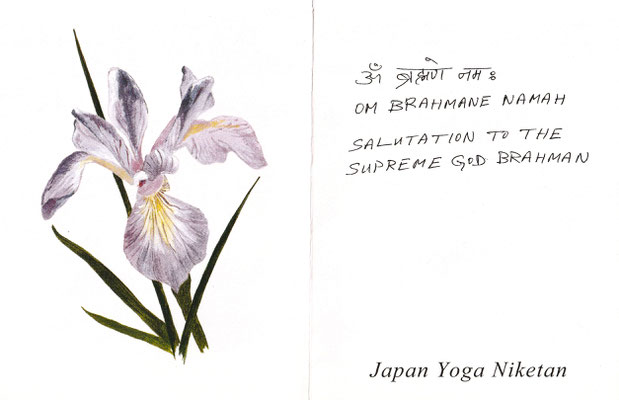 ॐ ब्रह्मणे नमः
OM BRAHMANE NAMAH
SALUTATION TO THE
SUPREME GOD BRAHMAN
Japan Yoga Niketan